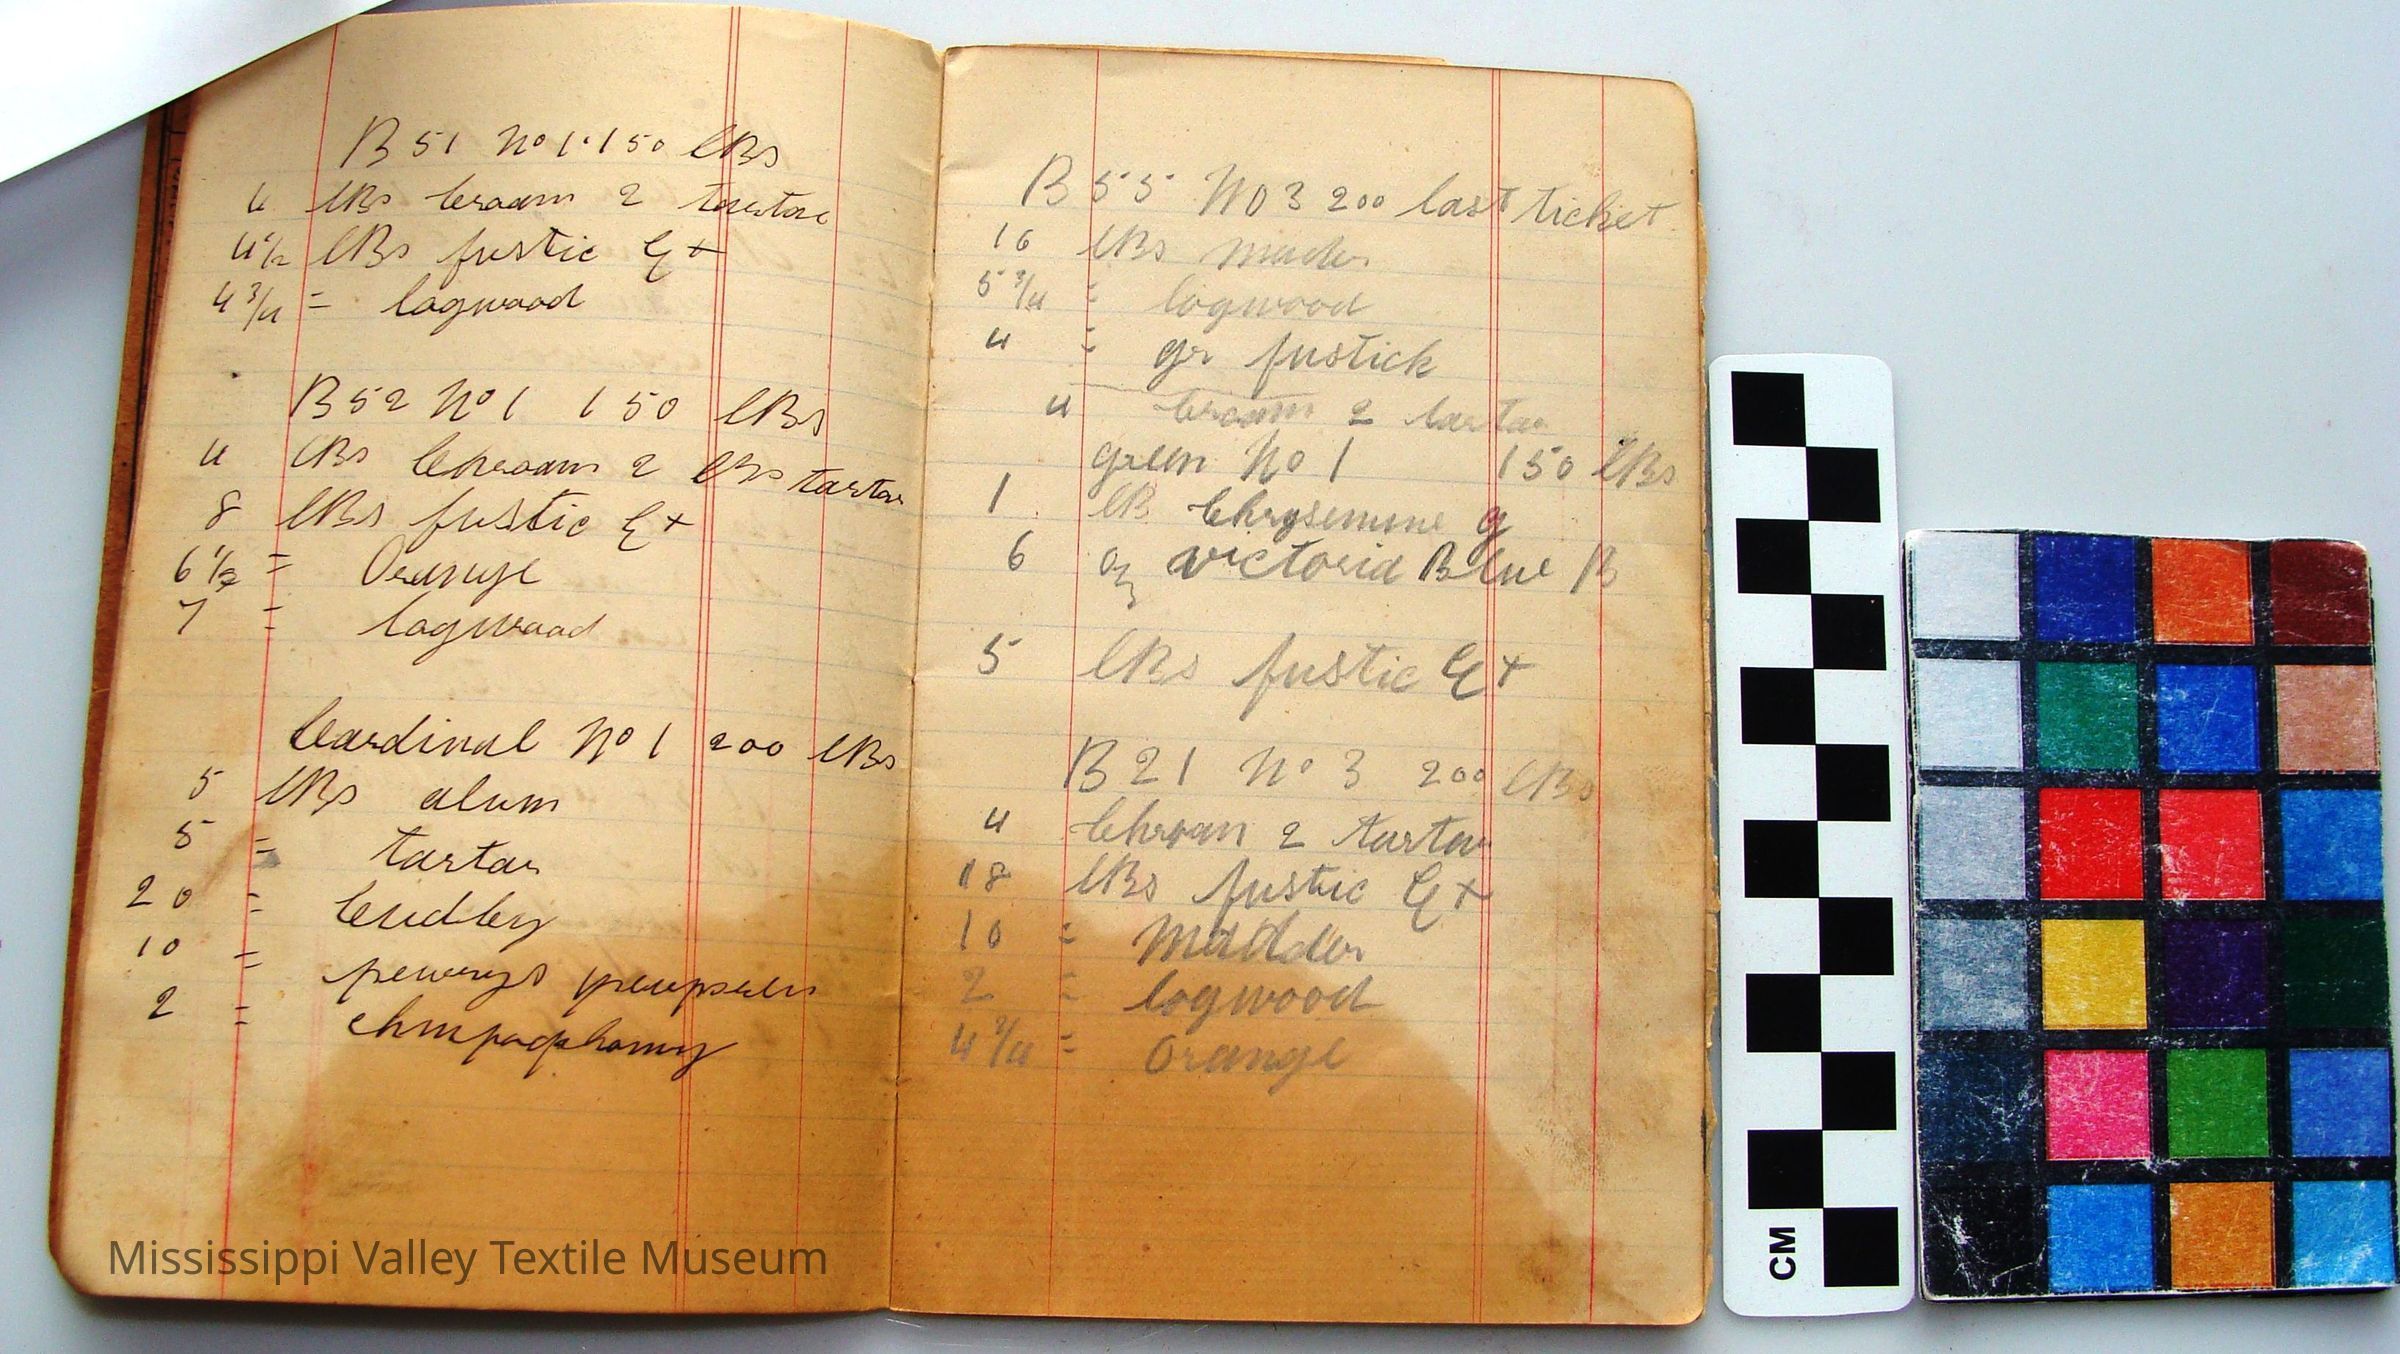 B 51 No 1 · 150 lBs
4 lBs Croam 2 tartar
4 1/2 lBs fustic Ext
4 3/4 = logwood
B 52 No 1 150 lBs
4 lBs Chroam 2 lBs tartar
8 lBs fustic Ext
6 1/2 = Orange
7 = logwood
Cardinal No 1 200 lBs
5 lBs alum
5 = tartar
20 = Cudbey
10 =
2 =
B 55 No 3 200 last ticket
16 lBs mader
5 3/4 = logwood
4 = gr fustick
4 Croam 2 tartar
green No 1 150 lBs
1 lB Chrysemine g
6 oz victoria Blue B
5 lBs fustic Ext
B 21 No 3 200 lBs
4 Chroam 2 tartar
18 lBs fustic Ext
10 = Madder
2 = logwood
4 3/4 = Orange
CM
Mississippi Valley Textile Museum